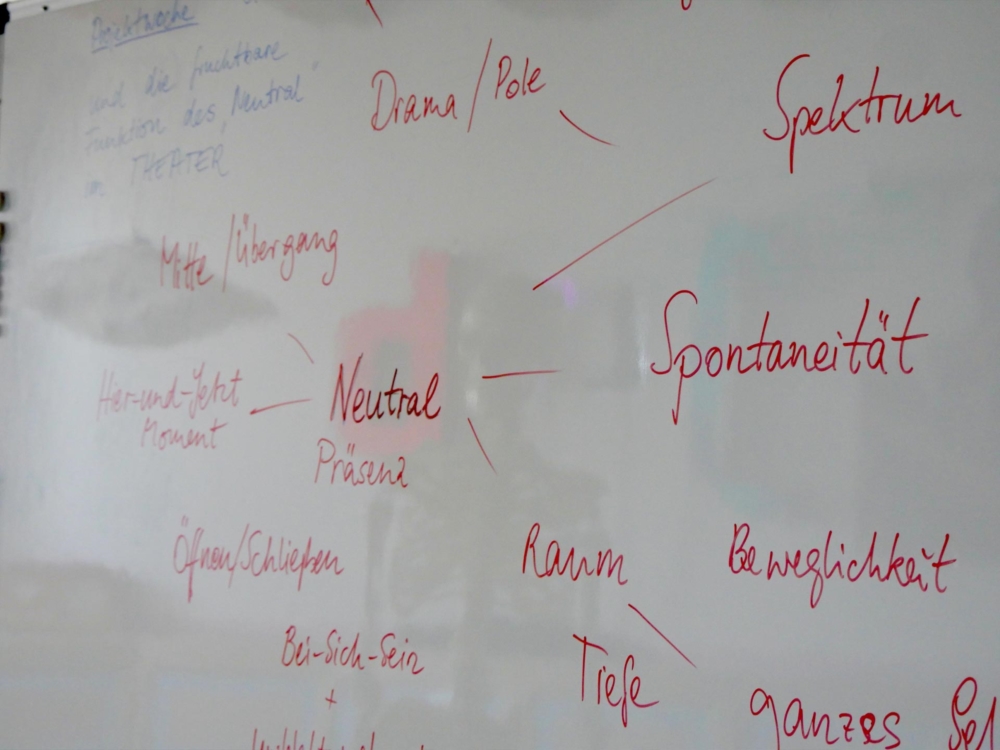 Projektwoche
und die fruchtbare
Funktion des „Neutral"
im THEATER
Drama / Pole
Spektrum
Mitte / Übergang
Spontaneität
Hier-und-Jetzt
Moment
Neutral
Präsenz
Öffnen/Schließen
Raum
Beweglichkeit
Bei-Sich-Sein
+
Tiefe
ganzes